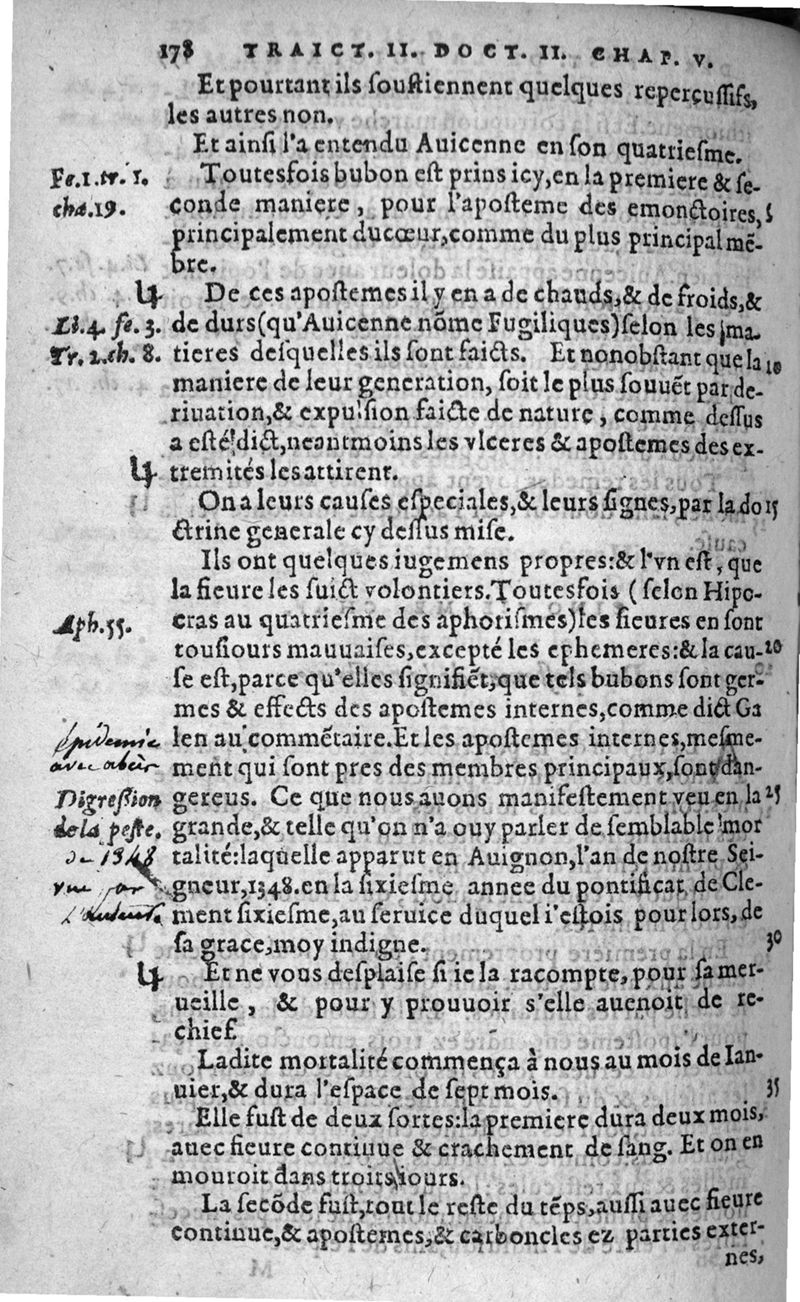 178 TRAICT. II. DOCT. II. CHAP. V.
Et pourtant ils ſouſtiennent quelques reperçuſſifs,
les autres non.
Et ainſi l'a entendu Auicenne en ſon quatrieſme.
Fe.1.tr.1. Toutesfois bubon eſt prins icy,en la premiere & ſe-
cha.19. conde maniere, pour l'apoſteme des emonctoires, 5
principalement du cœur,comme du plus principal mẽ-
bre.
De ces apoſtemes il y en a de chauds,& de froids,&
Li.4. fe.3. de durs(qu'Auicenne nõme Fugiliques)ſelon les ma-
Tr.2.ch.8. tieres deſquelles ils ſont faicts. Et nonobſtant que la 10
maniere de leur generation, ſoit le plus ſouuẽt par de-
riuation,& expulſion faicte de nature, comme deſſus
a eſté dict,neantmoins les vlceres & apoſtemes des ex-
tremités les attirent.
On a leurs cauſes eſpeciales,& leurs ſignes,par la do 15
ctrine generale cy deſſus miſe.
Ils ont quelques iugemens propres:& l'vn eſt, que
la fieure les ſuict volontiers.Toutesfois (ſelon Hipo-
Aph.55. cras au quatrieſme des aphoriſmes)les fieures en ſont
touſiours mauuaiſes,excepté les ephemeres:& la cau- 20
ſe eſt,parce qu'elles ſignifiẽt,que tels bubons ſont ger-
mes & effects des apoſtemes internes,comme dict Ga
Epidemie len au commẽtaire.Et les apoſtemes internes,meſme-
ment qui ſont pres des membres principaux,ſont dan-
Digreſſion gereus. Ce que nous auons manifeſtement veu en la 25
de la peſte. grande,& telle qu'on n'a ouy parler de ſemblable mor
de 1348 talité:laquelle apparut en Auignon,l'an de noſtre Sei-
vue par gneur,1348.en la ſixieſme annee du pontificat de Cle-
l'autheur ment ſixieſme,au ſeruice duquel i'eſtois pour lors, de
ſa grace,moy indigne. 30
Et ne vous deſplaiſe ſi ie la racompte, pour ſa mer-
ueille, & pour y prouuoir s'elle auenoit de re-
chief.
Ladite mortalité commença à nous au mois de Ian-
uier,& dura l'eſpace de ſept mois. 35
Elle fuſt de deux ſortes:la premiere dura deux mois,
auec fieure continue & crachement de ſang. Et on en
mouroit dans trois iours.
La ſecõde fuſt,tout le reſte du tẽps,auſſi auec fieure
continue,& apoſtemes,& carboncles ez parties exter-
nes,